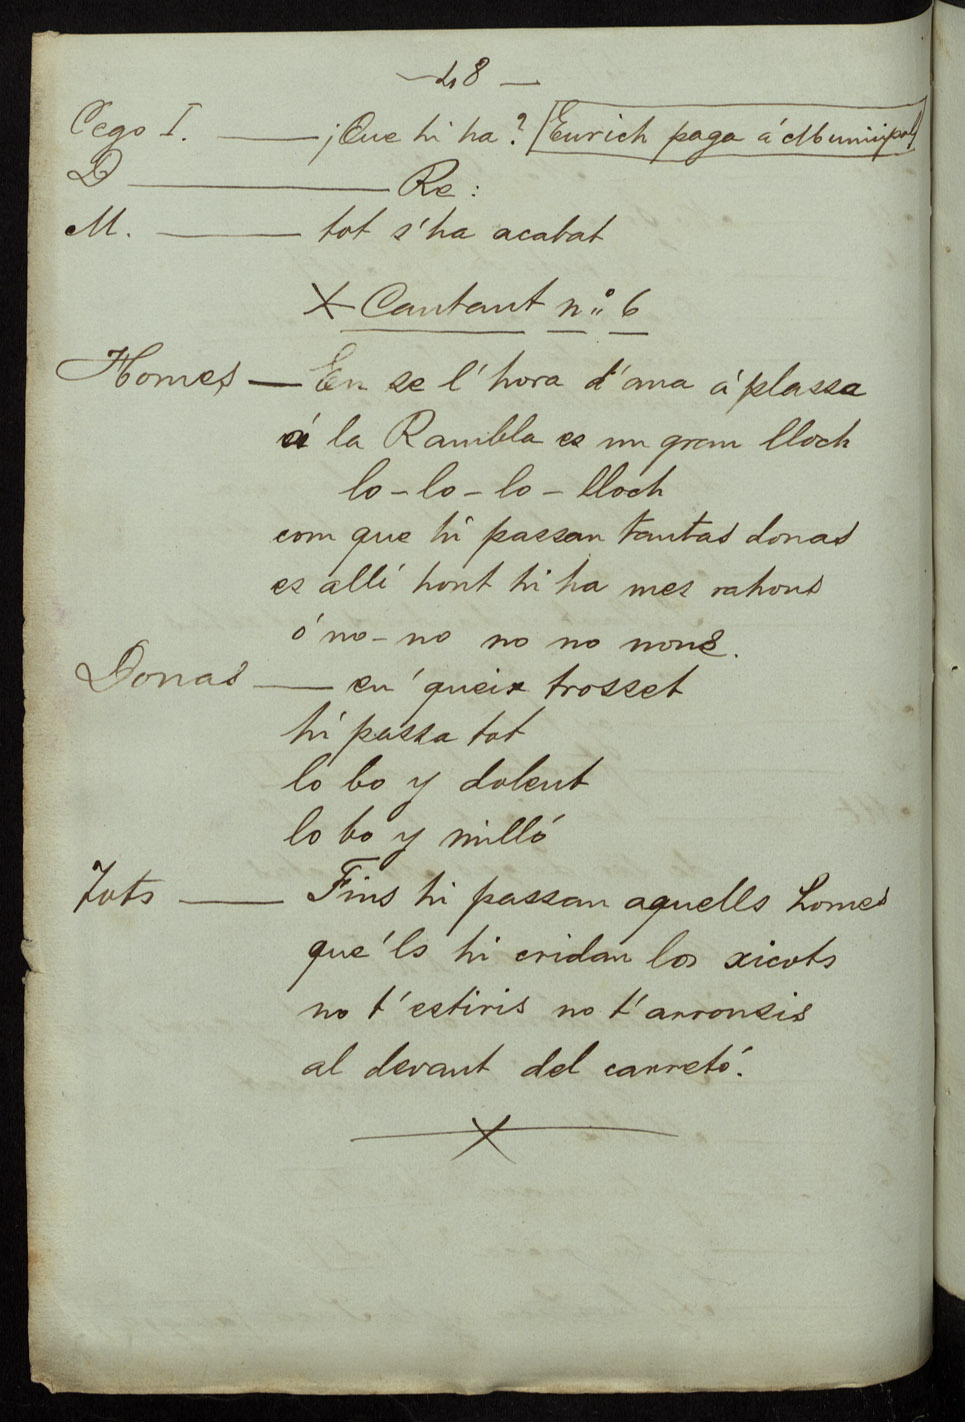 — 48 —
Cego I. — ¡Que hi ha? (Enrich paga á Municipal)
D — Re:
M. — tot s'ha acabat
X Cantant nº 6
Homes — En se l'hora d'ana á plassa
á la Rambla es un gran lloch
lo - lo - lo - lloch
com que hi passan tantas donas
es allí hont hi ha mes rahons
ó no - no no no nons.
Donas — en 'queix trosset
hi passa tot
lo bo y dolent
lo bo y milló
Tots — Fins hi passan aquells homes
que'ls hi cridan los xicots
no t'estiris no t'arronsis
al devant del carretó.